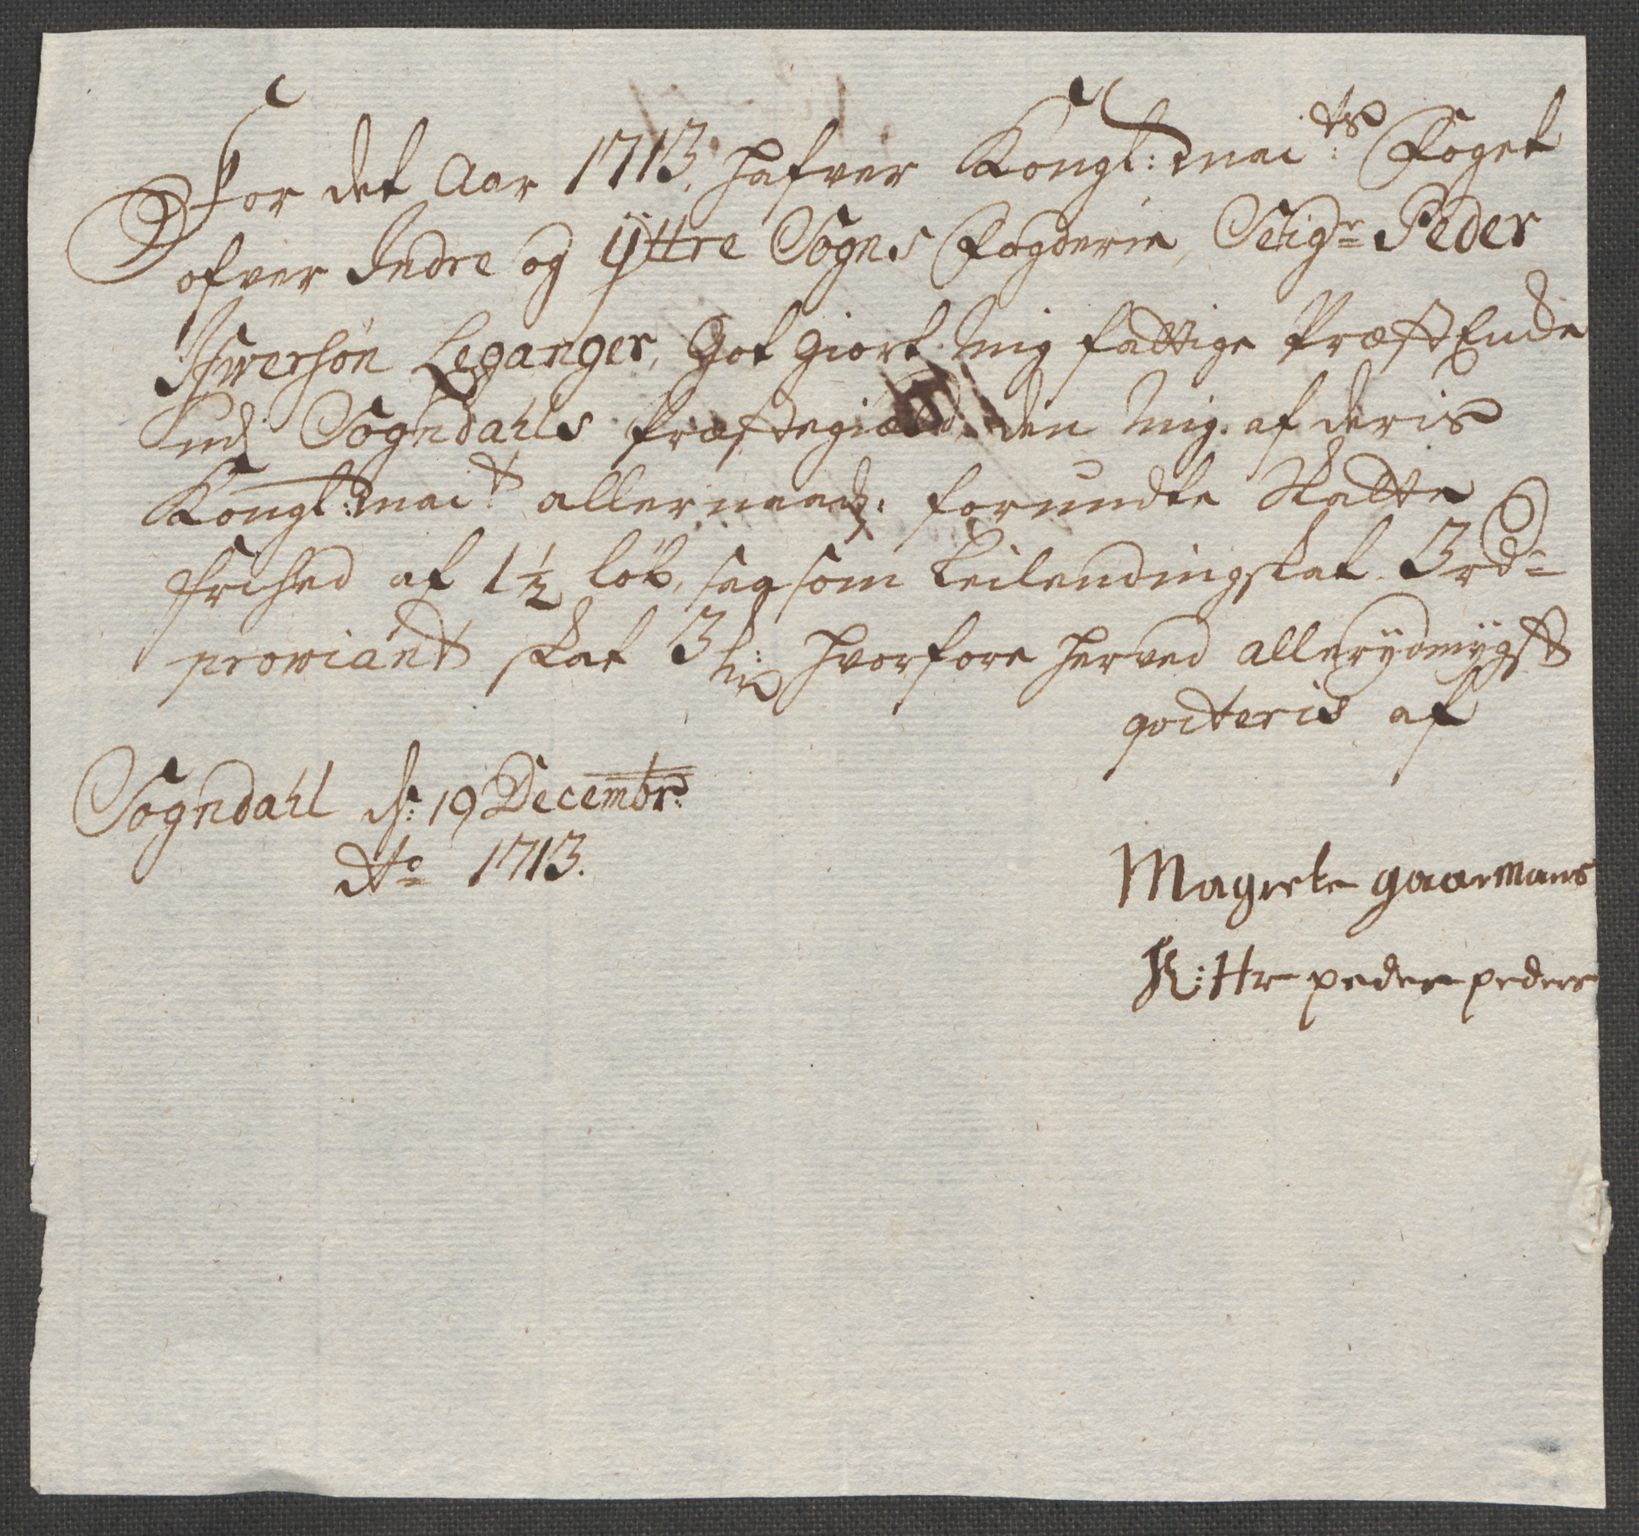 For det Aar 1713, hafver Kongl: mai:ts Foget
ofver Indre og Yttre Sogns Fogderie, Seigr Peder
Ifwersøn Leganger, Got giort mig fattige Præst Encke
udj Sogndahls Præstegield, den mig af deris
Kongl: mai:t allernaadg: forundte Skatte
frihed af 1½ løb, saasom Leilendingskat 3 rd=
prowiant skat 3 hvorfore herved allerydmygst
qvitteris af
Sogndahl d: 19 Decembr:
Ao 1713.
Magrete gaarmans
Hr peder peders